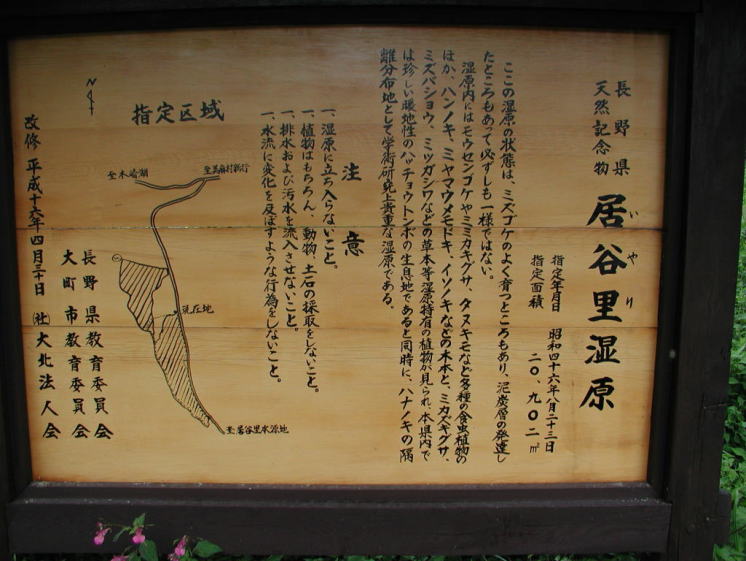 長野県
天然記念物
居谷里湿原
いやり
指定年月日 昭和四十六年八月二十三日
指定面積 二〇、九〇二㎡
ここの湿原の状態は、ミズゴケのよく育つところもあり、泥炭層の発達し
たところもあって必ずしも一様ではない。
湿原内にはモウセンゴケやミミカキグサ、タヌキモなど多種の食虫植物の
ほか、ハンノキ、ミヤマウメモドキ、イソノキなどの木本と、ミカズキグサ、
ミズバショウ、ミツガシワなどの草本等湿原特有の植物が見られ、本県内で
は珍しい暖地性のハッチョウトンボの生息地であると同時に、ハナノキの隔
離分布地として学術研究上貴重な湿原である。
注意
一、湿原に立ち入らないこと。
一、植物はもちろん、動物、土石の採取をしないこと。
一、排水および汚水を流入させないこと。
一、水流に変化を及ぼすような行為をしないこと。
指定区域
N
至木崎湖
至美麻村新行
現在地
至居谷里水源地
長野県教育委員会
大町市教育委員会
㈳大北法人会
改修 平成十六年四月三十日